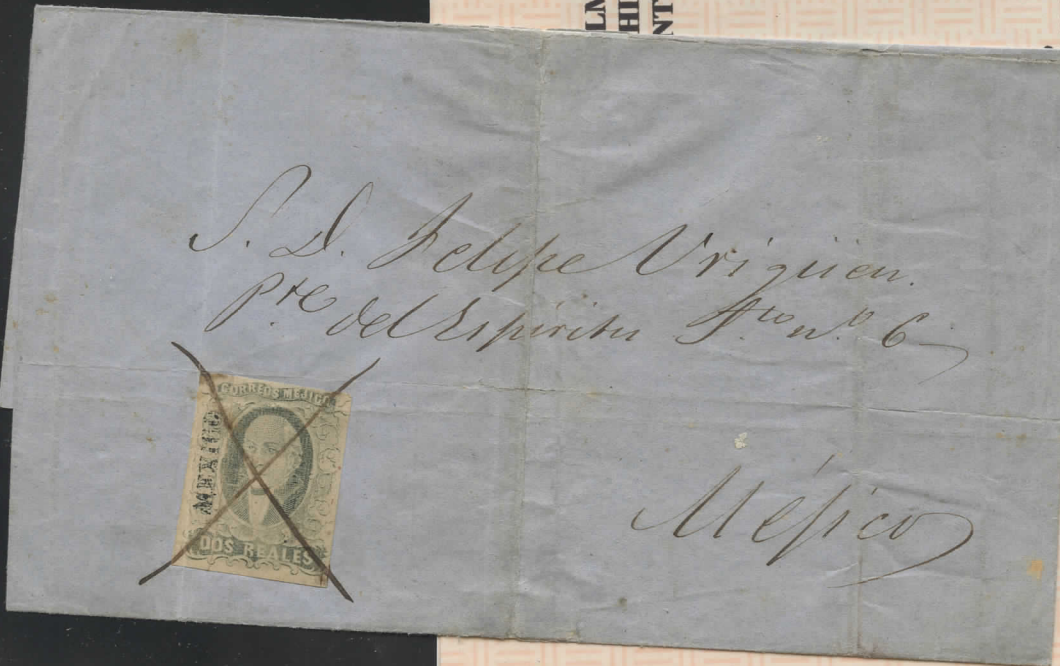 S. D. Felipe Urigüen.
Pte del Espiritu Sto no 6
CORREOS MEJICO
MEXICO
DOS REALES
Méjico
LN
HI
NT